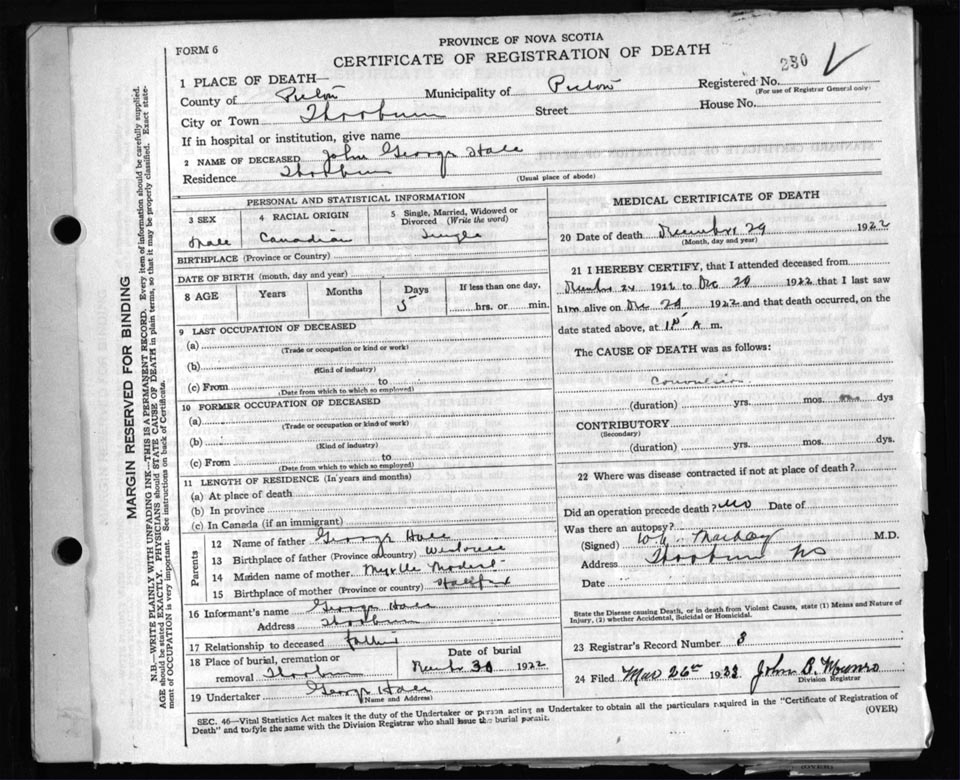 FORM 6
PROVINCE OF NOVA SCOTIA
CERTIFICATE OF REGISTRATION OF DEATH
1 PLACE OF DEATH—
Registered No. 230
(For use of Registrar General only)
County of Pictou Municipality of Pictou
City or Town Thorburn Street House No.
If in hospital or institution, give name
2 NAME OF DECEASED John George Hall
Residence Thorburn
(Usual place of abode)
PERSONAL AND STATISTICAL INFORMATION
3 SEX
4 RACIAL ORIGIN
5 Single, Married, Widowed or Divorced (Write the word)
Male Canadian Single
BIRTHPLACE (Province or Country)
DATE OF BIRTH (month, day and year)
8 AGE Years Months Days If less than one day,
5 hrs. or min.
9 LAST OCCUPATION OF DECEASED
(a)
(Trade or occupation or kind or work)
(b)
(Kind of industry)
(c) From to
(Date from which to which so employed)
10 FORMER OCCUPATION OF DECEASED
(a)
(Trade or occupation or kind of work)
(b)
(Kind of industry)
(c) From to
(Date from which to which so employed)
11 LENGTH OF RESIDENCE (In years and months)
(a) At place of death
(b) In province
(c) In Canada (if an immigrant)
Parents
12 Name of father George Hall
13 Birthplace of father (Province or country) Westville
14 Maiden name of mother Myrtle
15 Birthplace of mother (Province or country) Halifax
16 Informant's name George Hall
Address Thorburn
17 Relationship to deceased father
18 Place of burial, cremation or removal Thorburn
Date of burial
30 1922
19 Undertaker George Hall
(Name and Address)
MEDICAL CERTIFICATE OF DEATH
20 Date of death December 29 1922
(Month, day and year)
21 I HEREBY CERTIFY, that I attended deceased from
1922 to Dec 1922 that I last saw
him alive on Dec 1922 and that death occurred, on the
date stated above, at A m.
The CAUSE OF DEATH was as follows:
Convulsions
(duration) yrs. mos. dys
CONTRIBUTORY
(Secondary)
(duration) yrs. mos. dys.
22 Where was disease contracted if not at place of death?
Did an operation precede death? No Date of
Was there an autopsy?
(Signed) MacKay M.D.
Address Thorburn NS
Date
State the Disease causing Death, or in death from Violent Causes, state (1) Means and Nature of
Injury, (2) whether Accidental, Suicidal or Homicidal.
23 Registrar's Record Number 8
24 Filed Mar 26th John B. Munro
Division Registrar
SEC. 46—Vital Statistics Act makes it the duty of the Undertaker or person acting as Undertaker to obtain all the particulars required in the "Certificate of Registration of
Death" and to fyle the same with the Division Registrar who shall issue the burial permit. (OVER)
MARGIN RESERVED FOR BINDING
N.B.—WRITE PLAINLY WITH UNFADING INK—THIS IS A PERMANENT RECORD. Every item of information should be carefully supplied.
AGE should be stated EXACTLY. PHYSICIANS should STATE CAUSE OF DEATH in plain terms, so that it may be properly classified. Exact state-
ment of OCCUPATION is very important. See instructions on back of Certificate.
(OVER)